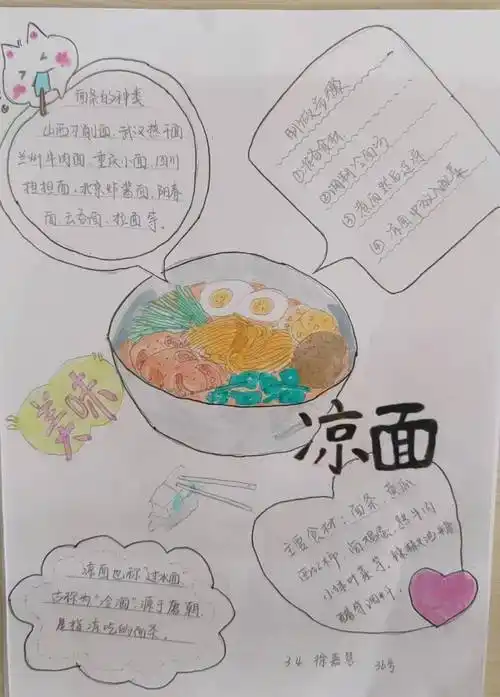 面条的种类
山西刀削面、武汉热干面
兰州牛肉面、重庆小面、四川
担担面、北京炸酱面、阳春
面、云吞面、拉面等。
制做步骤
①准备食材
②调制冷面汤
③煮面然后过凉
④在面中放入配菜
美味
凉面
主要食材：面条、黄瓜
西红柿、甜椒、熟牛肉
醋等调料
凉面也称"过水面"
古称为"冷淘"源于唐朝
是指凉吃的面条。
3.4 徐嘉
36号